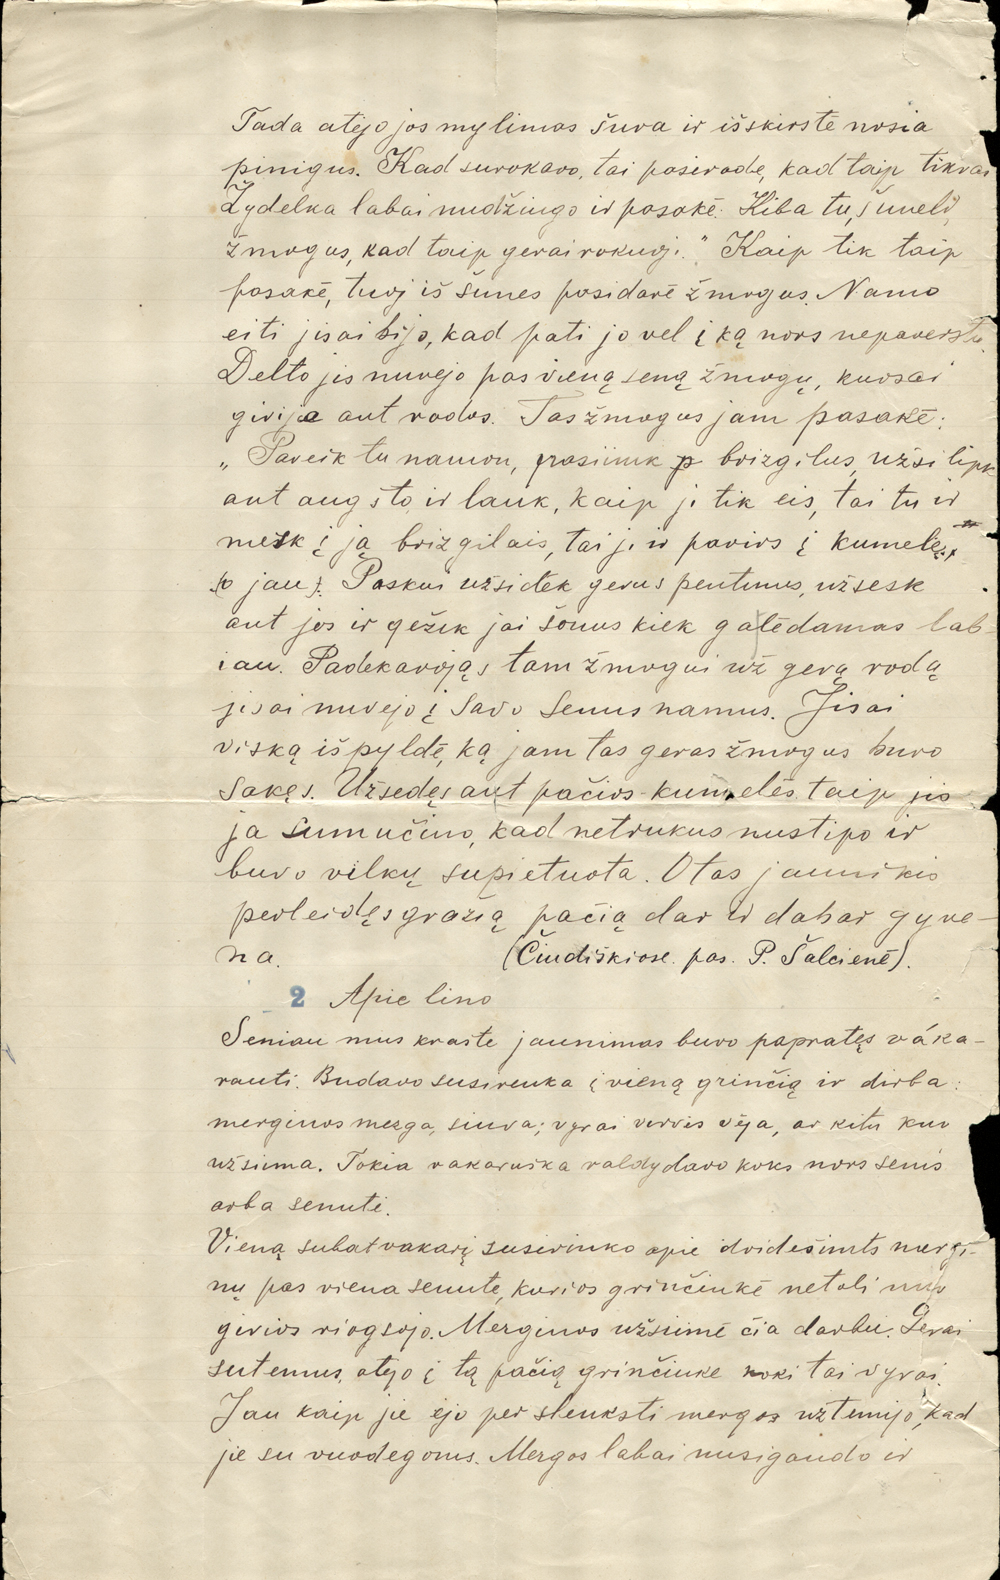 Tada atėjo jos mylimas šuva ir išskirstė nosia
pinigus. Kad surokavo, tai pasirodė, kad taip tikrai
Žydelka labai nudžiugo ir pasakė: Kiba tu, šuneli,
žmogus, kad taip gerai rokuoji." Kaip tik taip
pasakė, tuoj iš šunes pasidarė žmogus. Namo
eiti jisai bijo, kad pati jo vel į ką nors nepaverstu.
Delto jis nuvejo pas vieną seną žmogų, kursai
girija ant rodos. Tas žmogus jam pasakė:
„Pareik tu namon, pasiimk brizgilus, užsilipk
ant augsto ir lauk, kaip ji tik eis, tai tu ir
mesk į ją brizgilais, tai ji ir pavirs į kumelę,
o jau). Paskui užsidek gerus pentinus, užsesk
ant jos ir gežik jai šonus kiek galėdamas lab-
iau. Padekavojąs tam žmogui už gerą rodą
jisai nuvejo į savo senus namus. Jisai
viską išpyldė, ką jam tas geras žmogus buvo
sakęs. Užsedęs ant pačios kumelės taip jis
ja sumučino, kad netrukus nustipo ir
buvo vilkų supietuota. O tas jaunikis
perleidęs gražią pačią dar ir dabar gyve-
na. (Čiudiškiose. pas. P. Šalcienė).
2 Apie lino
Seniau mus krašte jaunimas buvo papratęs váka-
rauti. Budavo susirenka į vieną grinčią ir dirba:
merginos mezga, siuva; vyrai virvis vėja, ar kitu kuo
užsiima. Tokia vakaruška valdydavo koks nors senis
arba senutė.
Vieną subatvakarį susirinko apie dvidešimts mergi-
nų pas viena senute, kurios grinčiukė netoli nuo
girios riogsojo. Merginos užsiimė čia darbu. Gerai
sutemus, atejo į tą pačią grinčiuke koki tai vyrai.
Jau kaip jie ejo per slenksti mergos užtemijo, kad
jie su vuodegoms. Mergos labai nusigando ir